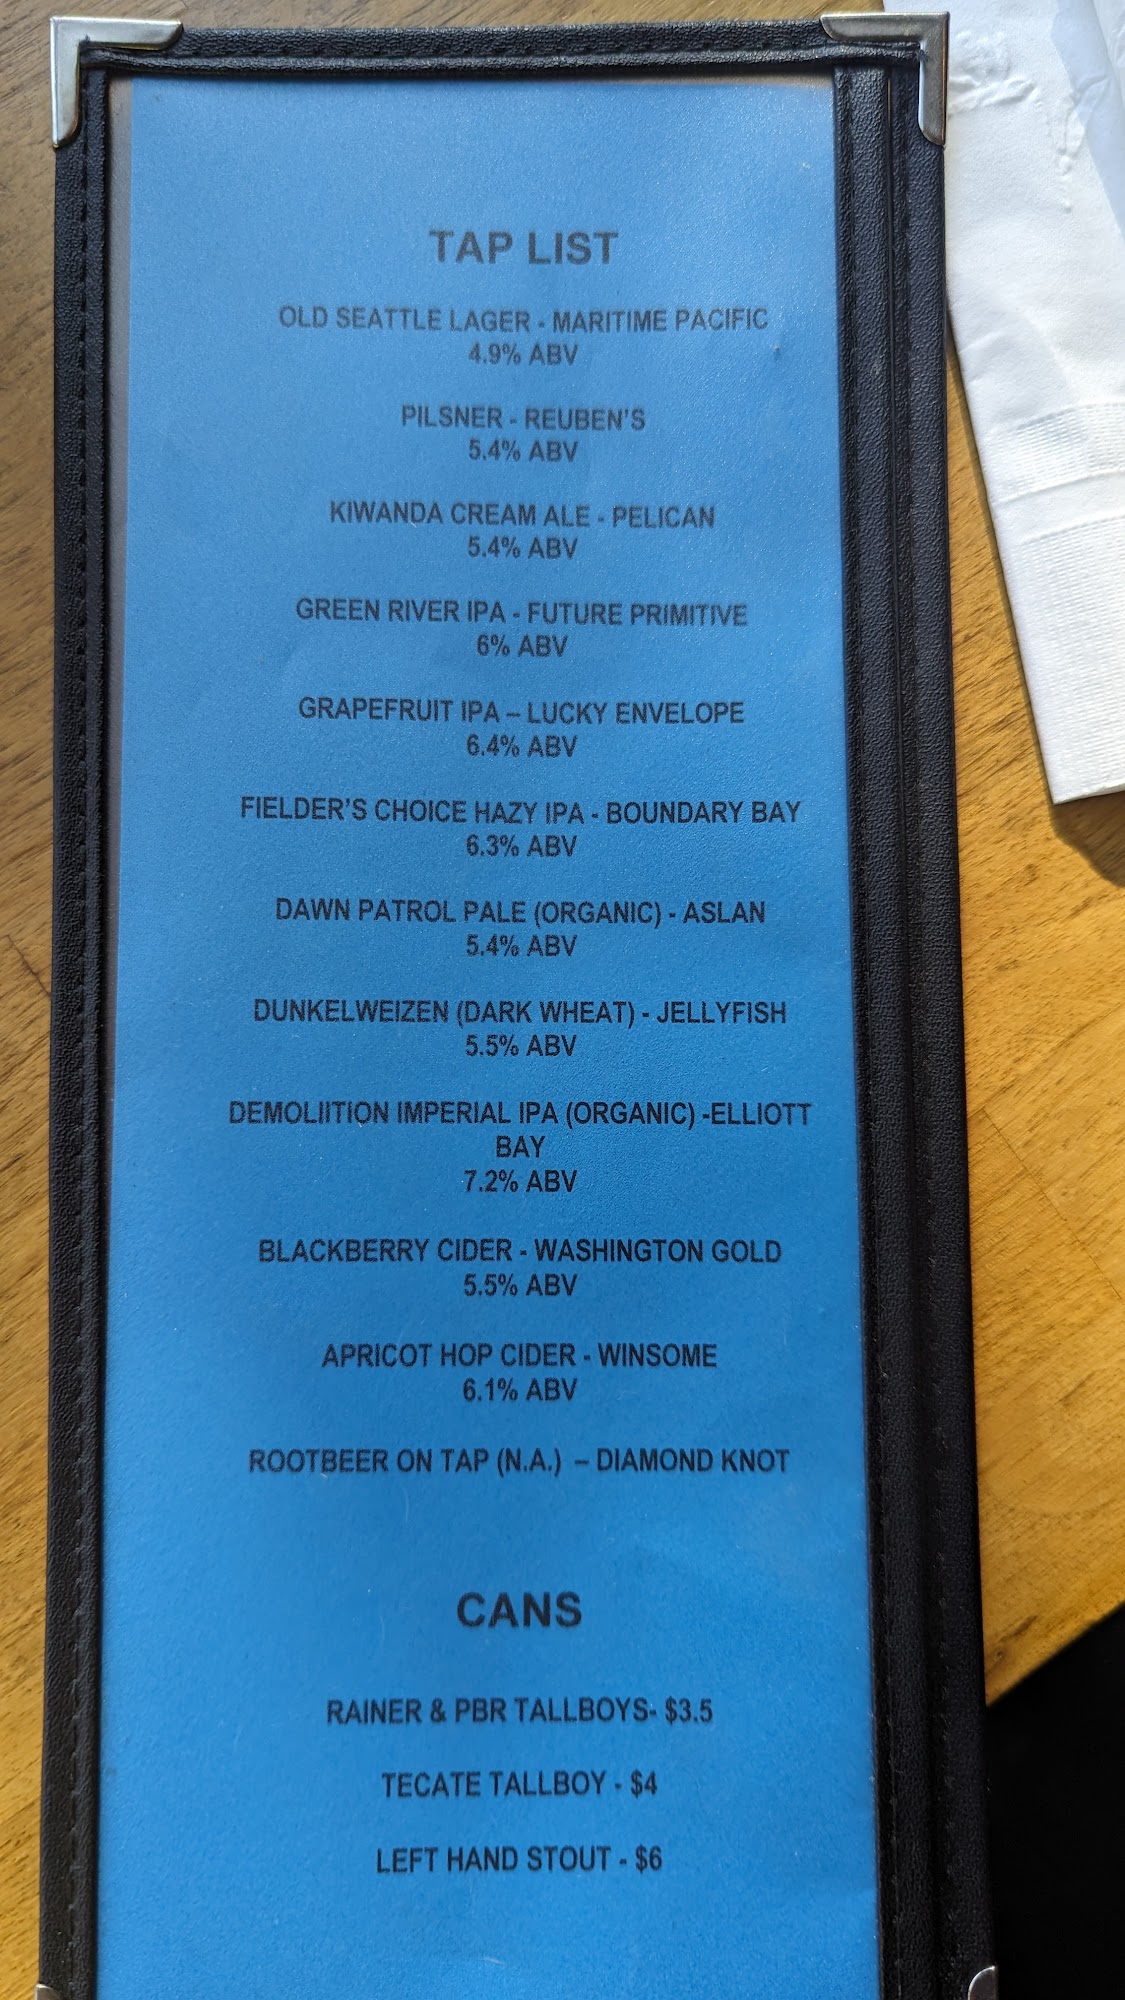 TAP LIST
OLD SEATTLE LAGER - MARITIME PACIFIC
4.9% ABV
PILSNER - REUBEN'S
5.4% ABV
KIWANDA CREAM ALE - PELICAN
5.4% ABV
GREEN RIVER IPA - FUTURE PRIMITIVE
6% ABV
GRAPEFRUIT IPA – LUCKY ENVELOPE
6.4% ABV
FIELDER'S CHOICE HAZY IPA - BOUNDARY BAY
6.3% ABV
DAWN PATROL PALE (ORGANIC) - ASLAN
5.4% ABV
DUNKELWEIZEN (DARK WHEAT) - JELLYFISH
5.5% ABV
DEMOLIITION IMPERIAL IPA (ORGANIC) -ELLIOTT
BAY
7.2% ABV
BLACKBERRY CIDER - WASHINGTON GOLD
5.5% ABV
APRICOT HOP CIDER - WINSOME
6.1% ABV
ROOTBEER ON TAP (N.A.) – DIAMOND KNOT
CANS
RAINER & PBR TALLBOYS- $3.5
TECATE TALLBOY - $4
LEFT HAND STOUT - $6